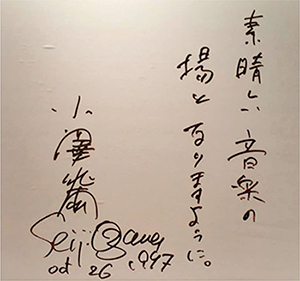 素晴しい音楽の
場となりますように。
小澤征爾
Seiji Ozawa
oct 26, 1997